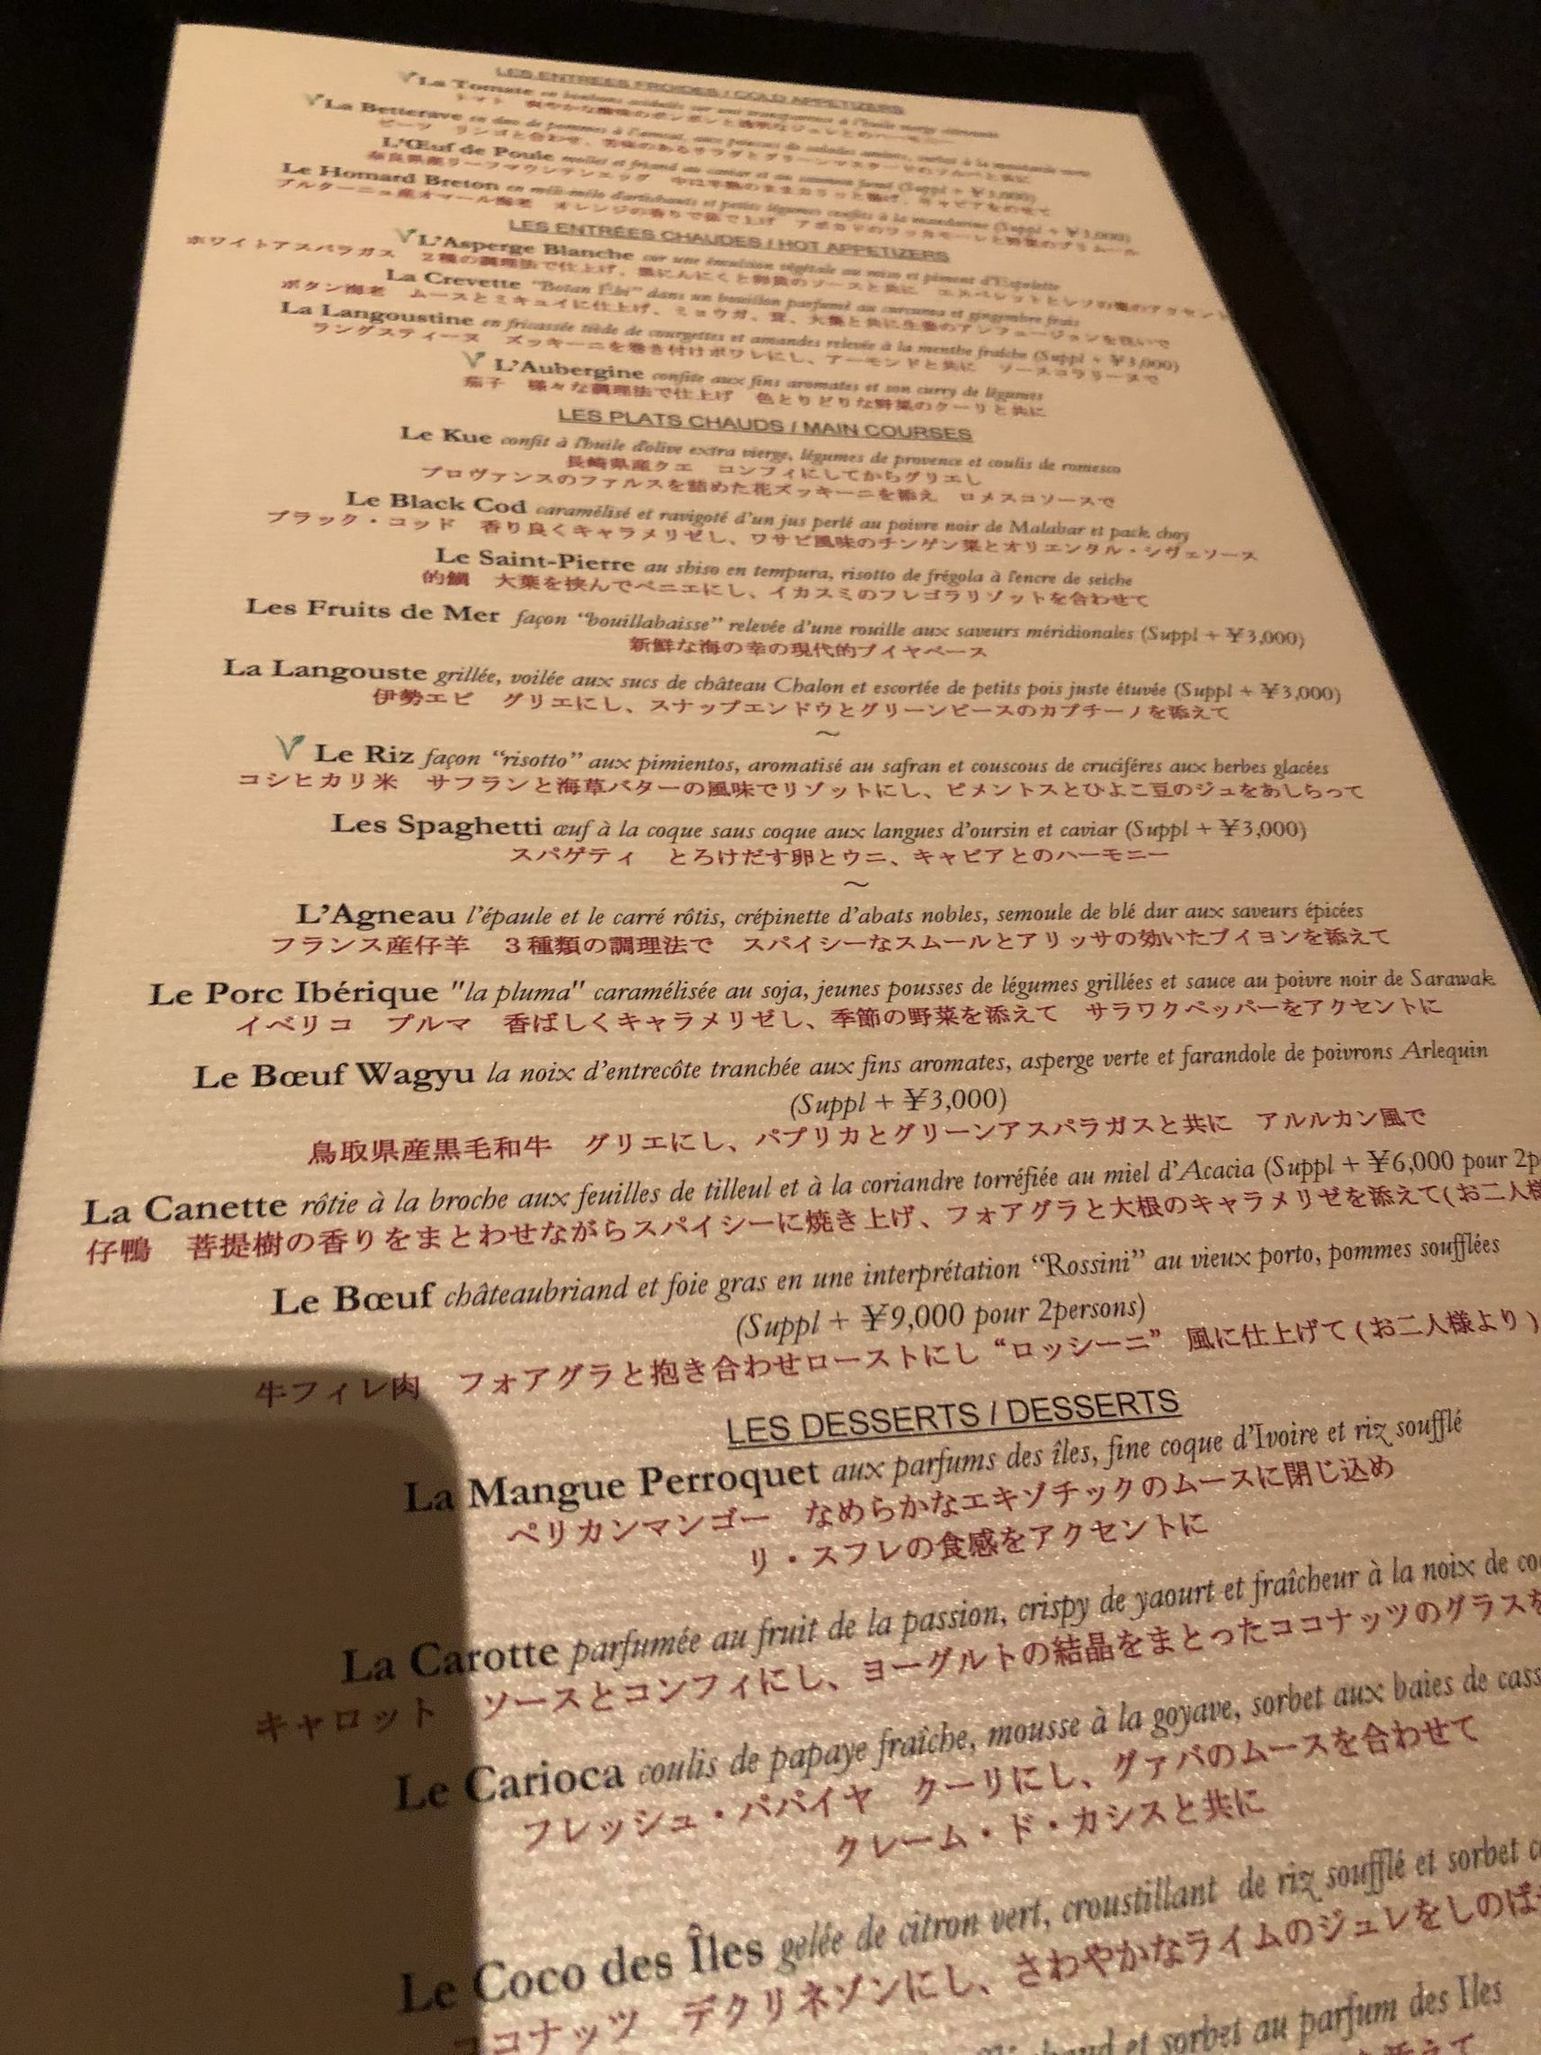 LES ENTRÉES FROIDES / COLD APPETIZERS
La Tomate
La Betterave en duo de pommes à l'avocat,
L'Œuf de Poule mollet et friand au caviar et au saumon fumé (Suppl + ¥3,000)
Le Homard Breton en mêli-mêlo d'artichauts et petits légumes confits à la mandarine (Suppl + ¥3,000)
LES ENTRÉES CHAUDES / HOT APPETIZERS
L'Asperge Blanche sur une émulsion végétale au miso et piment d'Espelette
ホワイトアスパラガス 2種の調理法で仕上げ、
La Crevette "Botan Ebi" dans un bouillon parfumé au curcuma et gingembre frais
ボタン海老 ムースとミキュイに仕上げ、ミョウガ、
La Langoustine en fricassée tiède de courgettes et amandes relevée à la menthe fraîche (Suppl + ¥3,000)
ラングスティーヌ ズッキーニを巻き付けポワレにし、アーモンドと共に
L'Aubergine confite aux fins aromates et son curry de légumes
茄子 様々な調理法で仕上げ 色とりどりな野菜のクーリと共に
LES PLATS CHAUDS / MAIN COURSES
Le Kue confit à l'huile d'olive extra vierge, légumes de provence et coulis de romesco
長崎県産クエ コンフィにしてからグリエし
プロヴァンスのファルスを詰めた花ズッキーニを添え ロメスコソースで
Le Black Cod caramélisé et ravigoté d'un jus perlé au poivre noir de Malabar et pack choy
ブラック・コッド 香り良くキャラメリゼし、ワサビ風味のチンゲン菜とオリエンタル・シヴェソース
Le Saint-Pierre au shiso en tempura, risotto de frégola à l'encre de seiche
的鯛 大葉を挟んでベニエにし、イカスミのフレゴラリゾットを合わせて
Les Fruits de Mer façon "bouillabaisse" relevée d'une rouille aux saveurs méridionales (Suppl + ¥3,000)
新鮮な海の幸の現代的ブイヤベース
La Langouste grillée, voilée aux sucs de château Chalon et escortée de petits pois juste étuvée (Suppl + ¥3,000)
伊勢エビ グリエにし、スナップエンドウとグリーンピースのカプチーノを添えて
~
Le Riz façon "risotto" aux pimientos, aromatisé au safran et couscous de cruciféres aux herbes glacées
コシヒカリ米 サフランと海草バターの風味でリゾットにし、ピメントスとひよこ豆のジュをあしらって
Les Spaghetti œuf à la coque saus coque aux langues d'oursin et caviar (Suppl + ¥3,000)
スパゲティ とろけだす卵とウニ、キャビアとのハーモニー
~
L'Agneau l'épaule et le carré rôtis, crépinette d'abats nobles, semoule de blé dur aux saveurs épicées
フランス産仔羊 3種類の調理法で スパイシーなスムールとアリッサの効いたブイヨンを添えて
Le Porc Ibérique "la pluma" caramélisée au soja, jeunes pousses de légumes grillées et sauce au poivre noir de Sarawak
イベリコ プルマ 香ばしくキャラメリゼし、季節の野菜を添えて サラワクペッパーをアクセントに
Le Bœuf Wagyu la noix d'entrecôte tranchée aux fins aromates, asperge verte et farandole de poivrons Arlequin
(Suppl + ¥3,000)
鳥取県産黒毛和牛 グリエにし、パプリカとグリーンアスパラガスと共に アルルカン風で
La Canette rôtie à la broche aux feuilles de tilleul et à la coriandre torréfiée au miel d'Acacia (Suppl + ¥6,000 pour 2p
仔鴨 菩提樹の香りをまとわせながらスパイシーに焼き上げ、フォアグラと大根のキャラメリゼを添えて(お二人様
Le Bœuf châteaubriand et foie gras en une interprétation "Rossini" au vieux porto, pommes soufflées
(Suppl + ¥9,000 pour 2persons)
牛フィレ肉 フォアグラと抱き合わせローストにし "ロッシーニ" 風に仕上げて (お二人様より)
LES DESSERTS / DESSERTS
La Mangue Perroquet aux parfums des îles, fine coque d'Ivoire et riz soufflé
ペリカンマンゴー なめらかなエキゾチックのムースに閉じ込め
リ・スフレの食感をアクセントに
La Carotte parfumée au fruit de la passion, crispy de yaourt et fraîcheur à la noix de co
キャロット ソースとコンフィにし、ヨーグルトの結晶をまとったココナッツのグラスを
Le Carioca coulis de papaye fraîche, mousse à la goyave, sorbet aux baies de cass
フレッシュ・パパイヤ クーリにし、グァバのムースを合わせて
クレーム・ド・カシスと共に
Le Coco des Îles gelée de citron vert, croustillant de riz soufflé et sorbet c
ココナッツ デクリネゾンにし、さわやかなライムのジュレをしのば
chaud et sorbet au parfum des Iles